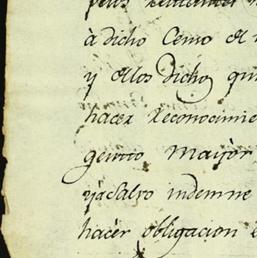 à dicho Censo el
y ellos Dichos qu
hacer Reconocimie
gentio mayor
y à Salvo indemne
hacer obligacion